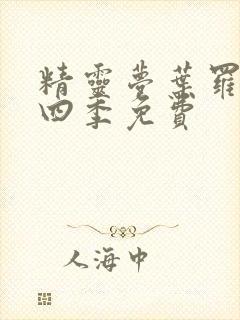 精靈夢葉羅
四季免費
人海中